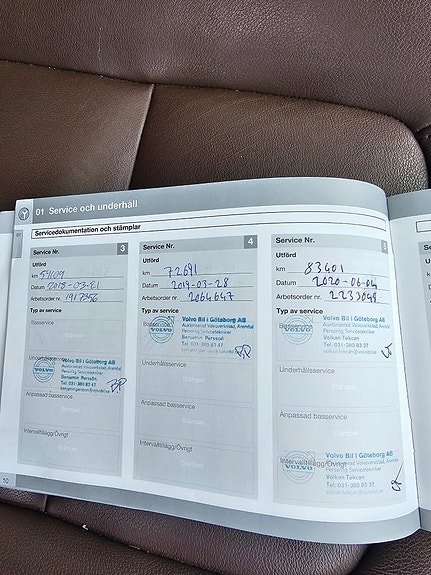 01 Service och underhåll
01
Servicedokumentation och stämplar
Service Nr. 3
Utförd
km
Datum 2018-03-21
Arbetsorder nr. 1917356
Typ av service
Basservice
Underhållsservice
Volvo Bil i Göteborg AB
Auktoriserad Volvoverkstad, Arendal
Personlig Servicetekniker
Benjamin Persson
Tel: 031-380 83 47
VOLVO
B.P
Stämpel
Anpassad basservice
Stämpel
Intervalltillägg/Övrigt
Stämpel
10
Service Nr. 4
Utförd
km 72691
Datum 2019-03-28
Arbetsorder nr. 2064647
Typ av service
Basservice
Volvo Bil i Göteborg AB
Auktoriserad Volvoverkstad, Arendal
Personlig Servicetekniker
Benjamin Persson
Tel: 031-380 83 47
VOLVO
B.P
Underhållsservice
Stämpel
Anpassad basservice
Stämpel
Intervalltillägg/Övrigt
Stämpel
Service Nr. 5
Utförd
km 83401
Datum 2020-06-04
Arbetsorder nr. 2233048
Typ av service
Basservice
Volvo Bil i Göteborg AB
Auktoriserad Volvoverkstad, Arendal
Personlig Servicetekniker
Volkan Tekcan
Tel: 031-380 83 37
VOLVO
Underhållsservice
Stämpel
Anpassad basservice
Stämpel
Intervalltillägg/Övrigt
Volvo Bil i Göteborg AB
Auktoriserad Volvoverkstad, Arendal
Personlig Servicetekniker
Volkan Tekcan
Tel: 031-380 83 37
VOLVO